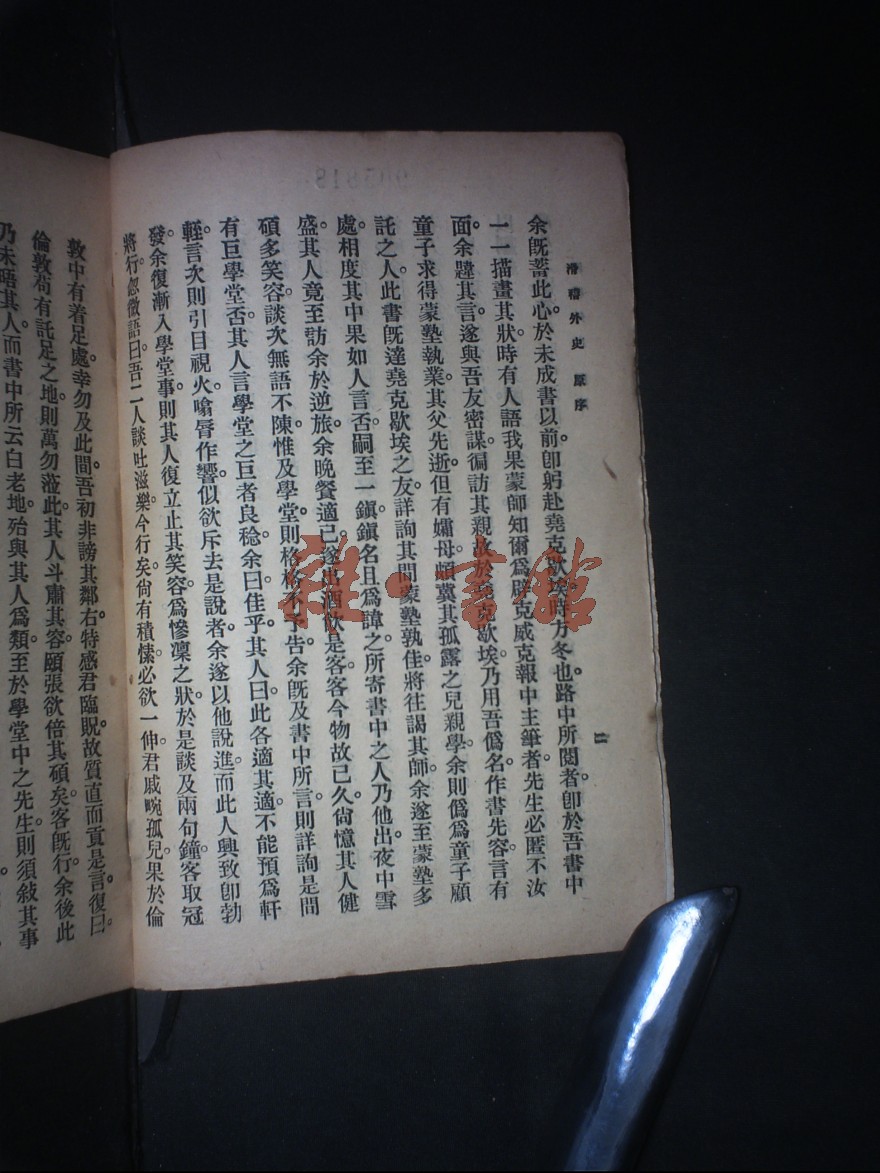 滑稽外史 原序
二
余旣蓄此心於未成書以前。卽躬赴堯克歇埃時方冬也。路中所閱者卽於吾書中
一一描畫其狀時有人語我果蒙師知爾爲辟克威克報中主筆者先生必匿不汝
面余韙其言遂與吾友密謀徧訪其親故於堯克歇埃乃用吾僞名作書先容言有
童子求得蒙塾執業其父先逝但有孀母頗冀其孤露之兒親學余則僞爲童子顧
託之人此書旣達堯克歇埃之友詳詢其間蒙塾孰佳將往謁其師余遂至蒙塾多
處相度其中果如人言否嗣至一鎭鎭名且爲諱之所寄書中之人乃他出夜中雪
盛其人竟至訪余於逆旅余晚餐適已遂出酒飮是客客今物故已久尙憶其人健
碩多笑容談次無語不陳惟及學堂則格格不予告余旣及書中所言則詳詢是間
有巨學堂否其人言學堂之巨者良稔余曰佳乎其人曰此各適其適不能預爲軒
輊言次則引目視火噏脣作響似欲斥去是說者余遂以他說進而此人興致卽勃
發余復漸入學堂事則其人復立止其笑容爲慘凜之狀於是談及兩句鐘客取冠
將行忽微語曰吾二人談吐滋樂今行矣尙有積愫必欲一伸君戚畹孤兒果於倫
敦中有着足處。幸勿及此間吾初非謗其鄰右特感君臨貺故質直而貢是言復曰
倫敦苟有託足之地則萬勿涖此其人斗肅其容頤張欲倍其碩矣客旣行余後此
乃未晤其人而書中所云白老地殆與其人爲類至於學堂中之先生則須敍其事
雜書館